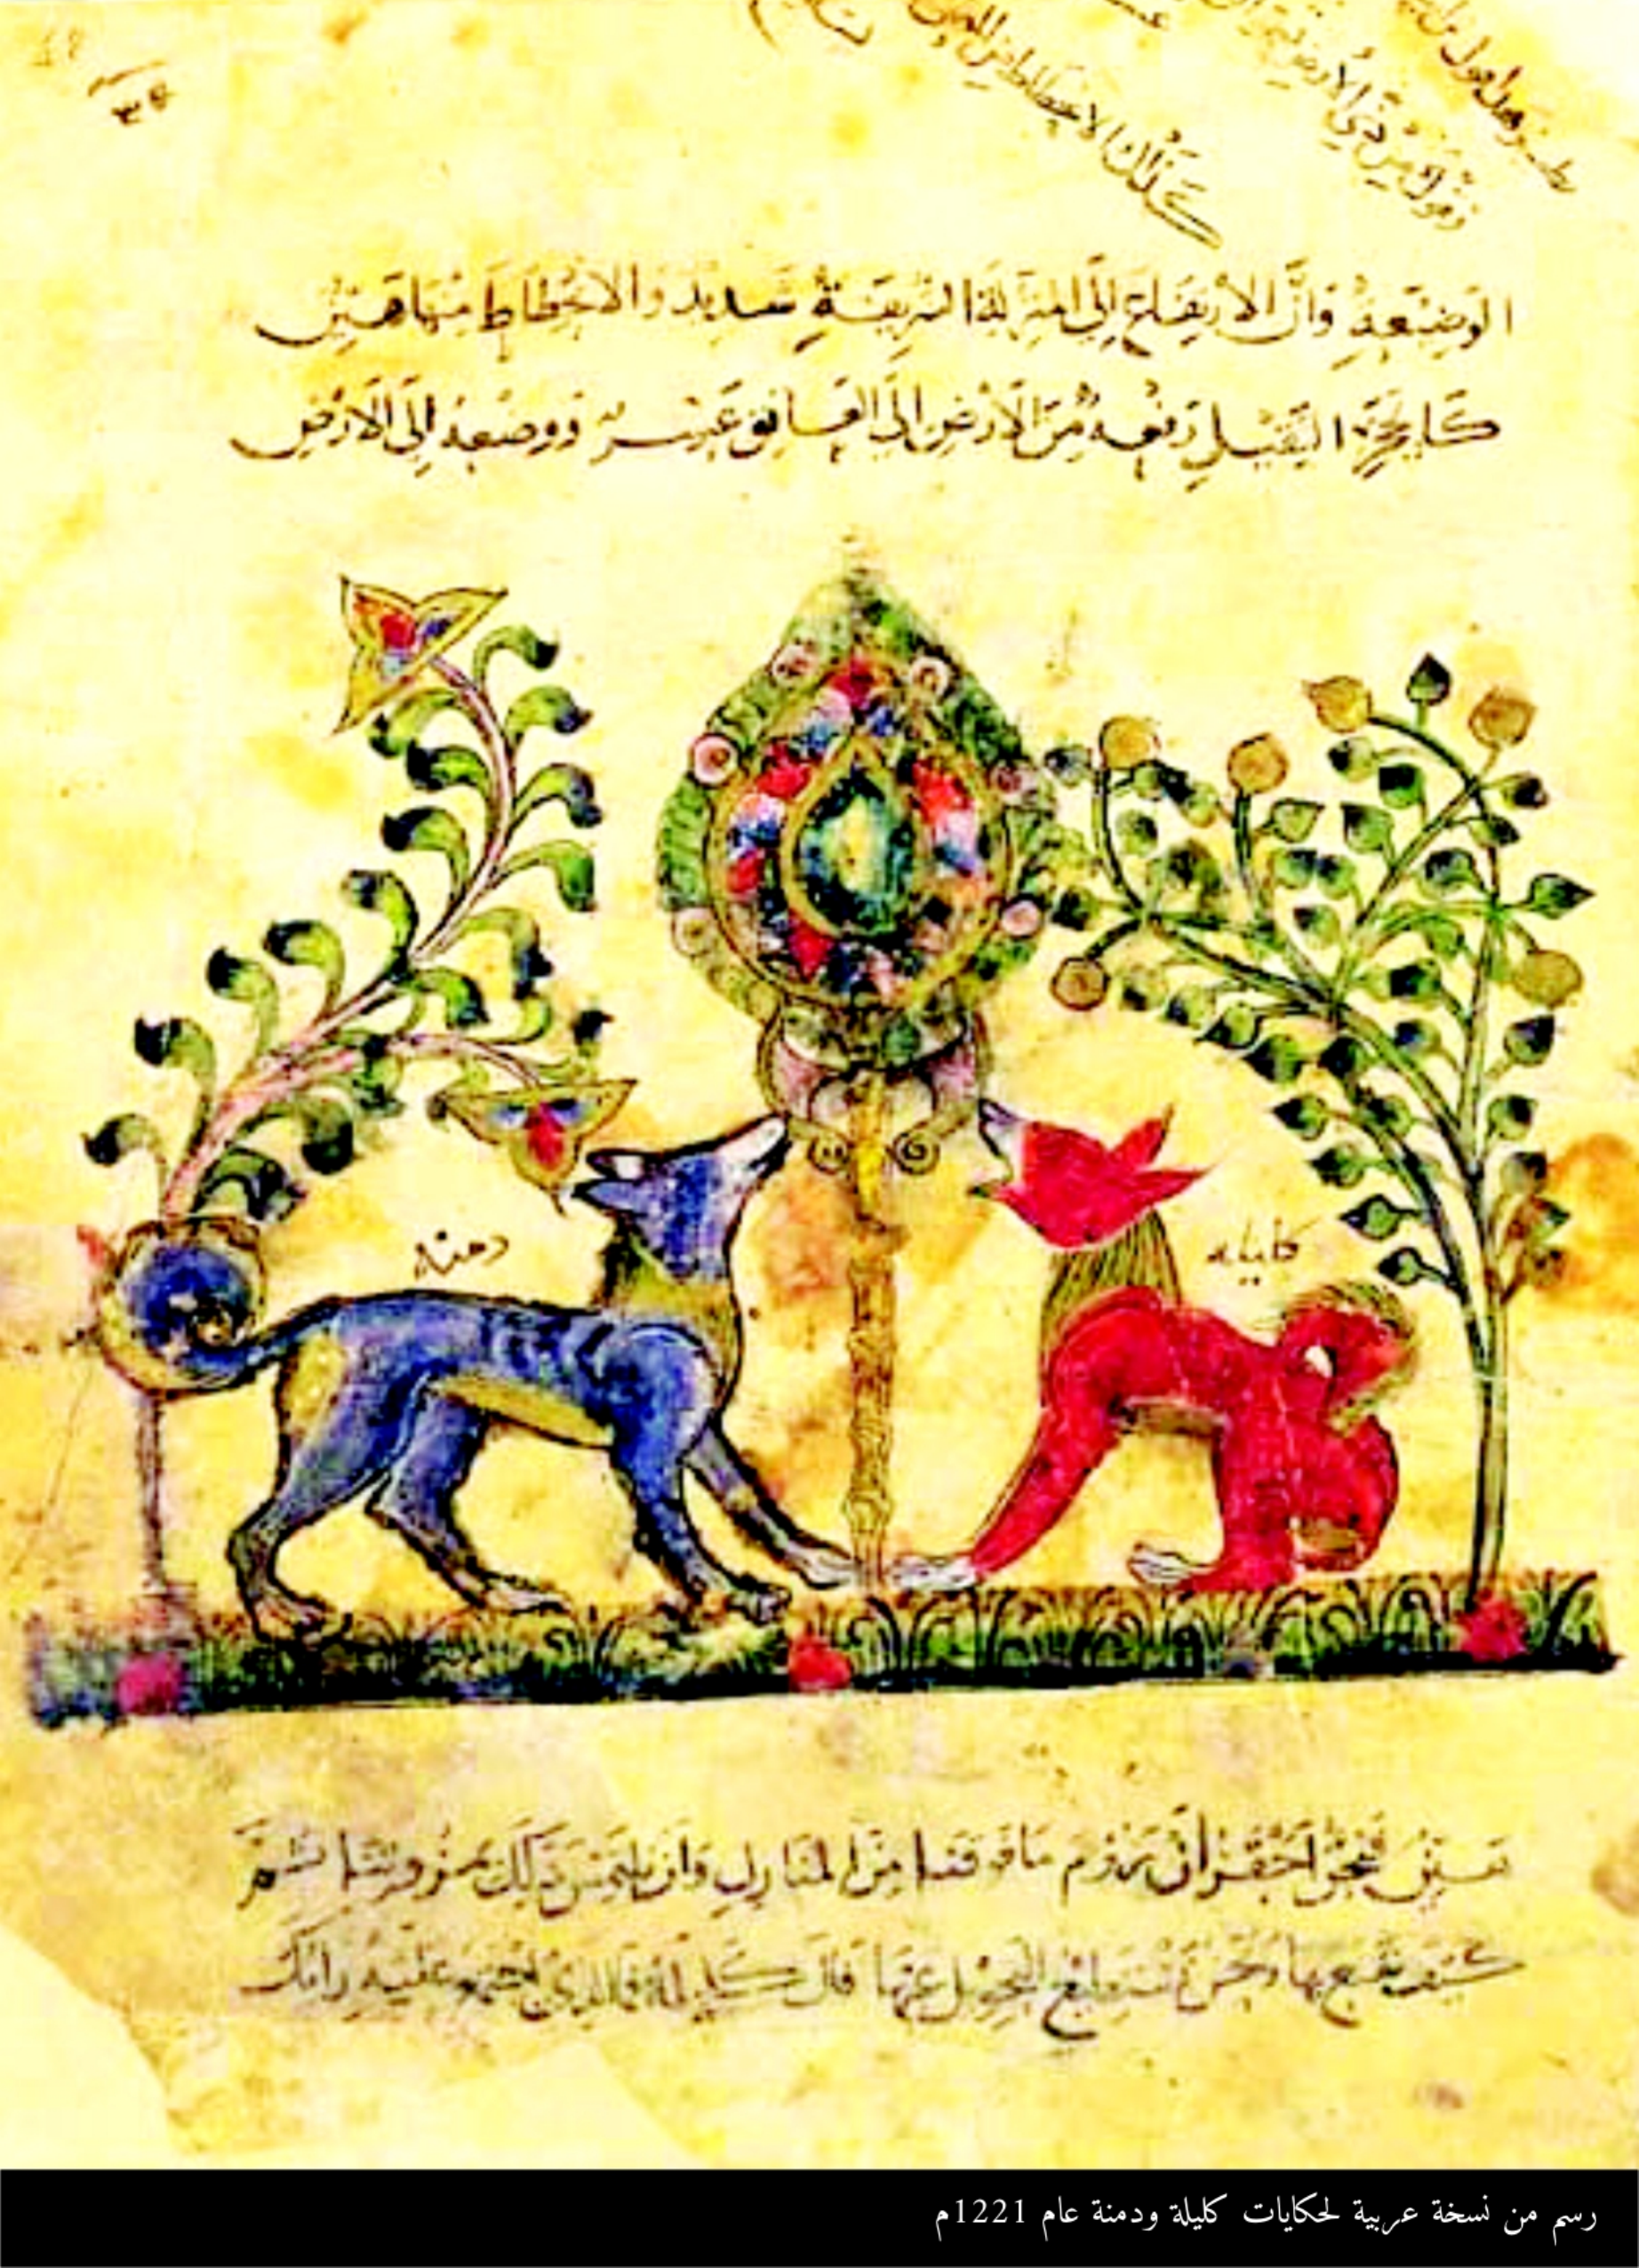 الوضيعة وان الارتفاع الى المنزلة الشريفة شديد والانحطاط منها هين
كالحجر الثقيل رفعه من الارض الى العاتق عسر ووضعه الى الارض
دمنه
كليله
فنحن احق ان نروم ما فوقنا من المنازل وان نلتمس ذلك بمروءتنا ثم
كيف نقنع بها ونحن نستطيع التحويل عنها قال كليلة فما الذي اجتمع عليه رايك
رسم من نسخة عربية لحكايات كليلة ودمنة عام 1221م